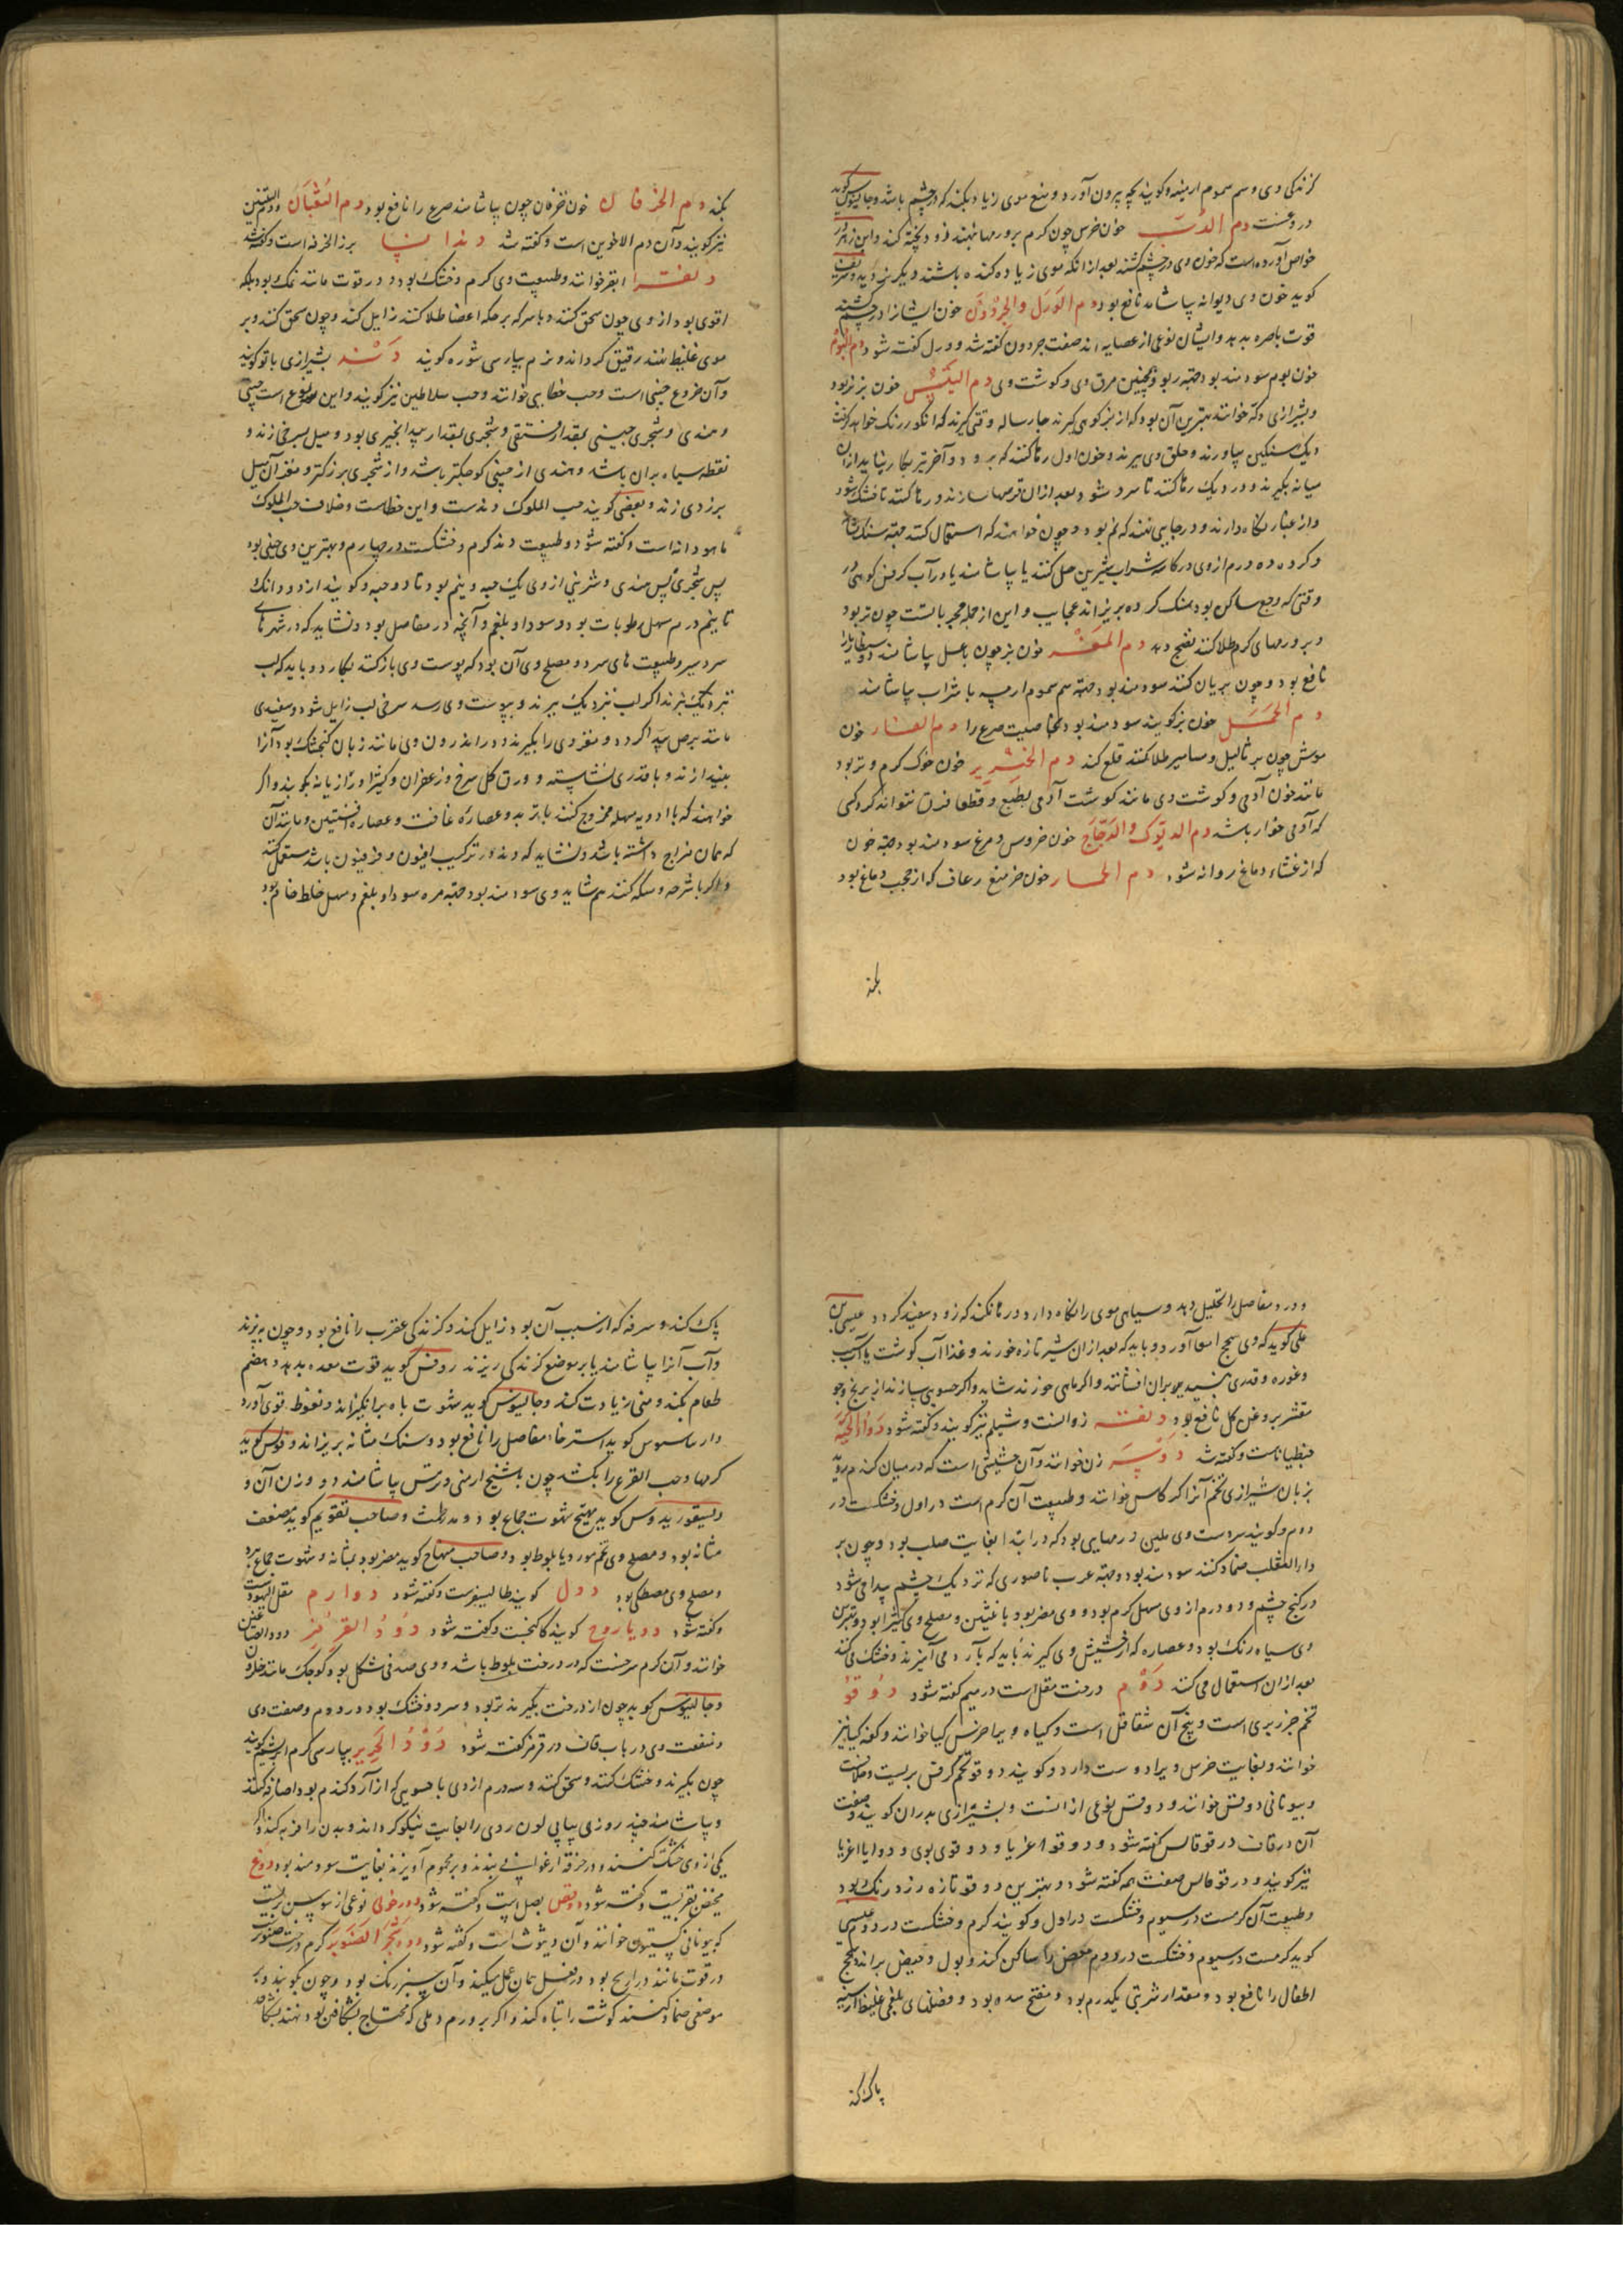 گزندگی وی و سم سموم ارمینه و گویند بچه بیرون آورد و منع موی زیاد بکند که در چشم باشد و جالینوس گوید
دروغست دم الدب خون خرس چون گرم بر ورمها نهند زود پخته کند و ابن زهر در
خواص آورده است که خون وی در چشم کشند بعد از آنکه موی زیاده کنده باشند دیگر نروید و شریف
گوید خون وی دیوانه بیاشامد نافع بود دم الورل والحردون خون ایشان را در چشم کشند
قوت باصره بدهد و ایشان نوعی از عضایه اند صفت حردون گفته شد و ورل گفته شود دم البوم
خون بوم سودمند بود جهة ربو و همچنین مرق وی و گوشت وی دم التیس خون بز نر بود
و بشیرازی تکه خوانند بهترین آن بود که از بز کوهی گیرند چهار ساله و وقتی گیرند که انگور رنگ خواهد گرفت
دیک سنگین بیاورند و حلق وی ببرند و خون اول رها کنند که برود و آخر نیز بکار نیاید از آن
میانه بگیرند و در دیک رها کنند تا سرد شود و بعد از آن قرصها سازند و رها کنند تا خشک شود
و از غبار نگاه دارند و در جایی نهند که نم نبود و چون خواهند که استعمال کنند جهة سنک مثانه
و گرده ده درم از وی در کاسه شراب شیرین حل کنند یا بیاشامند یا در آب کرفس کوهی در
وقتی که وجع ساکن بود سنک گرده بریزاند عجایب و این از جمله مجرباتست چون تر بود
و بر ورمهای گرم طلا کنند نضج دهد دم المعز خون بز چون با عسل بیاشامند
نافع بود و چون بریان کنند سودمند بود جهة سم سموم ارمیه با شراب بیاشامند
دم الحمل خون بز گویند سودمند بود بخاصیت صرع را دم الفار خون
موش چون بر ثالیل و مسامیر طلا کنند قلع کند دم الخنزیر خون خوک گرم و تر بود
مانند خون آدمی و گوشت وی مانند گوشت آدمی بطبع و قطعا فرق نتواند کرد کسی
که آدمی خوار باشد دم الدیوک والدجاج خون خروس و مرغ سودمند بود جهة خون
که از غشاء دماغ روانه شود دم الحمار خون خر منع رعاف که از حجب دماغ بود
بکند
بکند دم الخرفان خون خرفان چون بیاشامند صرع را نافع بود دم الثعبان و دم التنین
نیز گویند و آن دم الاخوین است و گفته شد برز الخرفه است و گفته شد
ابقر خوانند و طبیعت وی گرم و خشک بود و در قوت مانند نمک بود بلکه
اقوی بود از وی چون سحق کنند و با سرکه بر حکه اعضا طلا کنند زایل کند و چون سحق کنند و بر
موی غلیظ نهند رقیق گرداند و نرم بپارسی شوره گویند دند بشیرازی باتو گویند
و آن خروع چینی است و حب خطایی خوانند و حب سلاطین نیز گویند و این سه نوع است چینی
و هندی و شجری چینی بمقدار فستقی و شجری بمقدار بید انجیری بود و میل بسرخی زند و
نقطه سیاه بر آن باشد و هندی از چینی کوچکتر باشد و از شجری بزرگتر و مغز آن میل
بزردی زند و بعضی گویند حب الملوک دندست و این خطاست و خلاف حب الملوک
ماهودانه است و گفته شود و طبیعت دند گرم و خشکست در چهارم و بهترین وی چینی بود
پس شجری پس هندی و شربتی از وی یک حبه و نیم بود تا دو حبه و گویند از دو دانک
تا نیم درم مسهل رطوبات بود و سودا و بلغم و آنچه در مفاصل بود و نشاید که در شهرهای
سردسیر و طبیعت های سرد و مصلح وی آن بود که پوست وی باز کنند بکار دو باید که لب
نزدیک نبرند اگر لب نزدیک برند و پوست وی رسد سرخی لب زایل شود و سفیدی
مانند برص پیدا گردد و مغز وی را بگیرند و در اندرون وی مانند زبان گنجشک بود آنرا
بیندازند و با قدری نشاسته و ورق گل سرخ و زعفران و کتیرا و رازیانه بکوبند و اگر
خواهند که با ادویه مسهله ممزوج کنند با تربد و عصاره غافث و عصاره افسنتین و مانند آن
که همان مزاج داشته باشد و نشاید که دند در ترکیب افیون و فرفیون باشد مستعمل کنند
سودمند بود جهة مره سودا و بلغم و مسهل خلط خام بود
و درد مفاصل را تحلیل دهد و سیاهی موی را نگاه دارد و رها نکند که زود سفید گردد عیسی بن
علی گوید که وی سحج امعا آورد و باید که بعد از آن شیر تازه خورند و غذا آب گوشت یا آب سیب
و غوره و قدری بر آن افشانند و اگر ماهی خورند شاید و اگر حسوی سازند از برنج و جو
مقشر بروغن گل نافع بود دنقه زوانست و شیلم نیز گویند و گفته شود دواء الحیة
جنطیاناست و گفته شد دوسر زن خوانند و آن حشیشی است که در میان گندم روید
بزبان شیرازی تخم آنرا گرکاس خوانند و طبیعت آن گرم است در اول و خشکست در
دوم و گویند سردست وی ملین ورمهایی بود که در ابتدا بغایت صلب بود و چون بر
داء الثعلب ضماد کنند سودمند بود و جهة غرب ناصوری که نزدیک چشم پیدا می شود
در کنج چشم و دو درم از وی مسهل کرم بود و وی مضر بود باعثین و مصلح وی کتیرا بود و بهترین
وی سیاه رنگ بود و عصاره که از حشیش وی گیرند باید که بآرد می آمیزند و خشک می کنند
بعد از آن استعمال می کنند دوم درخت مقل است در میم گفته شود دوقو
تخم جزر بری است و بیخ آن شقاقل است و گیاه ویرا خرس گیا خوانند و کفه گیا نیز
خوانند و بغایت خرس ویرا دوست دارد و گویند دوقو تخم کرفس بریست و خلافست
و بیونانی دوقس خوانند و دوقس نوعی از آنست و بشیرازی بدران گویند و صفت
آن در قاف در قوقالس گفته شود و دوقو اغریا و دوقوی بوی و دوایا اغریا
نیز گویند و در قوقالس صفت همه گفته شود و بهترین دوقو تازه زرد رنگ بود
و طبیعت آن گرمست در سیوم و خشکست در اول و گویند گرم و خشکست در دوم عیسی
گوید گرمست در سیوم و خشکست در دوم مغص را ساکن کند و بول و حیض براند
اطفال را نافع بود و مقدار شربتی یکدرم بود و مفتح سده بود و فضلهای بلغمی غلیظ از سینه
پاک کند
پاک کند و سرفه که از سبب آن بود زایل کند و گزندگی عقرب را نافع بود و چون بپزند
و آب آنرا بیاشامند یا بر موضع گزندگی ریزند روفس گوید قوت معده بدهد و هضم
طعام بکند و منی زیادت کند و جالینوس گوید شهوت باه برانگیزاند و نعوظ قوی آورد
و ارماسوس گوید استرخاء مفاصل را نافع بود و سنک مثانه بریزاند و فولس گوید
کرمها و حب القرع را بکشد چون با شیح ارمنی و ترمس بیاشامند دو وزن آن و
دیسقوریدوس گوید مهیج شهوت جماع بود و مدر طمث و صاحب تقویم گوید مضعف
مثانه بود و مصلح وی تخم مورد یا بلوط بود و صاحب منهاج گوید مضر بود بمثانه و شهوت جماع ببرد
و مصلح وی مصطکی بود دول گویند طالیسفرست و گفته شود دوارم مقل الیهودست
و گفته شود دویاروح گویند کاکنجست و گفته شود دود القرمز
خوانند و آن کرم سرخست که در درخت بلوط باشد و وی صدفی شکل بود و کوچک مانند حلزون
و جالینوس گوید چون از درخت بگیرند تر بود و سرد و خشک بود در دوم و صفت وی
و منفعت وی در باب قاف در قرمز گفته شود دود الحریر بپارسی کرم ابریشم گویند
چون بگیرند و خشک کنند و سحق کنند و سه درم از وی با حسویی که از آرد گندم بود اضافه کنند
و بیاشامند چند روزی پیاپی لون روی را بغایت نیکو گرداند و بدن را فربه کند و اگر
یکی از وی خشک کنند و در خرقه ارغوانی بندند و بر محموم آویزند بغایت سودمند بود دوغ
مخیض بقریست و گفته شود دوقص بصل است و گفته شود دورحولی نوعی از سوسن بریست
که بیونانی کسیفیون خوانند و آن دبوث است و گفته شود دود شجر الصنوبر کرم درخت صنوبر
در قوت مانند ذراریح بود و در فعل همان عمل میکند و آن سبز رنگ بود و چون بکوبند و بر
موضعی ضماد کنند گوشت را تباه کند و اگر بر ورم دملی که محتاج بشکافتن بود نهند بشکافد